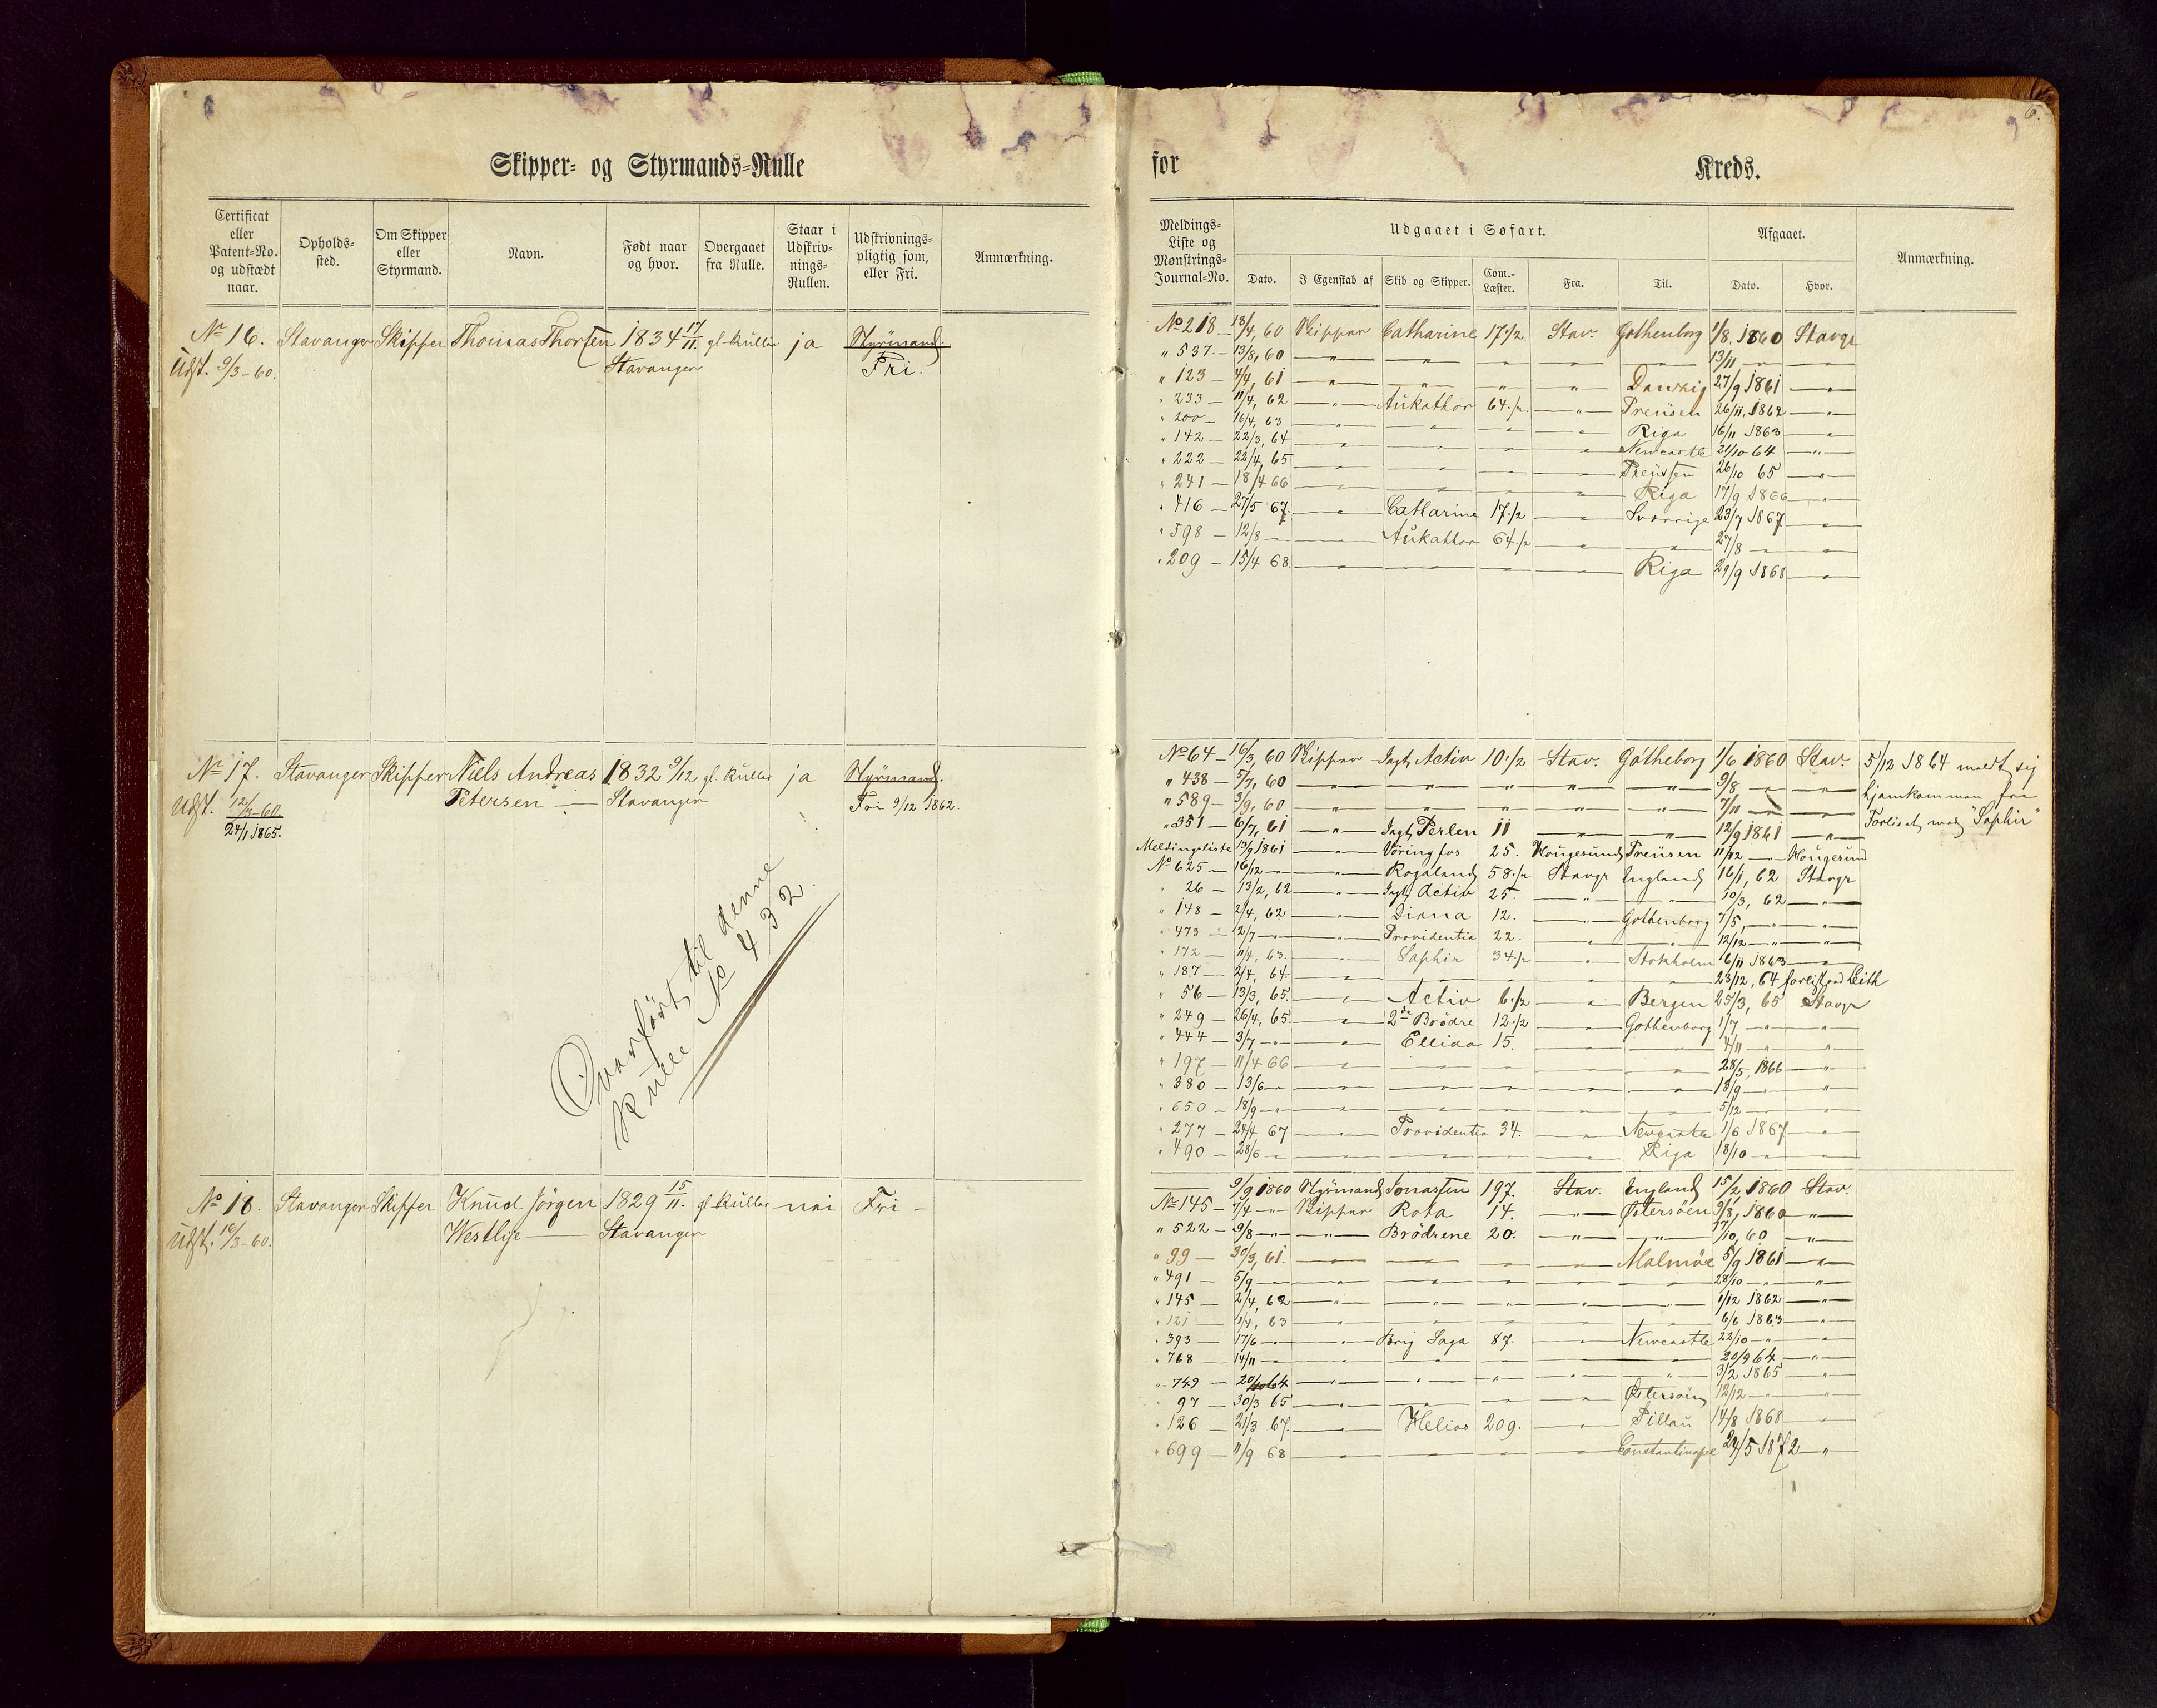 6.
Skipper- og Styrmands-Rulle for Kreds.
Certificat eller Patent-No. og udstædt naar. Opholds-sted. Om Skipper eller Styrmand. Navn. Født naar og hvor. Overgaaet fra Rulle. Staar i Udskriv-nings-Rullen. Udskrivnings-pligtig som, eller Fri. Anmærkning.
Meldings-Liste og Mønstrings-Journal-No. Udgaaet i Søfart. Afgaaet. Anmærkning.
Dato. I Egenskab af Skib og Skipper. Com.-Læster. Fra. Til. Dato. Hvor.
No 16. Stavanger Skipper Thomas Thorsen 1834 17/11. gl. Rulle ja Styrmand.
Udst. 9/3-60. Stavanger Fri.
No 218 18/4, 60 Skipper Catharine 17 1/2 Stav. Gothenborg 1/8. 1860 Stavgr
" 537. - 13/8, 60 — " — — " — — 13/11 — " — — " —
" 123 - 4/4, 61 — " — — " — — " — — " — Danzig 27/9 1861 — " —
" 233 - 11/4, 62 — " — Aukathor 64 1/2. — " — Preusen 26/11, 1862 — " —
" 200 - 16/4, 63 — " — — " — — " — — " — Riga 16/11 1863 — " —
" 142 - 22/3, 64 — " — — " — — " — — " — Newcastle 21/10 64 — " —
" 222 - 22/4, 65 — " — — " — — " — — " — Preussen 26/10 65 — " —
" 241 - 18/4 66 — " — — " — — " — — " — Riga 17/9 1866 — " —
" 416 - 27/5 67. — " — Catharine 17 1/2 — " — Sverrige 23/7 1867 — " —
" 598 - 12/8 — — " — Aukathor 64 1/2 — " — — " — 27/8 — " — — " —
" 209 - 15/4 68. — " — — " — — " — — " — Riga 29/9 1868 — " —
No 17. Stavanger Skipper Niels Andreas 1832 9/12 gl. Rulle ja Styrmand.
Udst. 12/3-60. Petersen — Stavanger Fri 9/12 1862.
24/1 1865.
Overført til denne
Rulle No 432.
No 64 - 16/3, 60 Skipper Jagt Activ 10 1/2 Stav. Götheborg 1/6 1860 Stav. 5/12 1864 meldt sig
" 438 - 5/7, 60 — " — — " — — " — — " — — " — 9/8 — " — — " — hjemkommen fra
" 589 - 3/9, 60 — " — — " — — " — — " — — " — 7/11 — " — — " — Forliset med "Saphir"
" 351 - 6/7, 61 — " — Jagt Perlen 11 — " — — " — 12/9 1861 — " —
Meldingsliste 13/9 1861 — " — Vöringfos 25. Hougesund Preusen 11/12 — " — Hougesund
No 625 - 16/12 — " — — " — Rogaland 58 1/2 Stavgr England 16/1, 62 Stavgr
" 26 - 13/2, 62 — " — Jagt Activ 25. — " — — " — 10/3, 62 — " —
" 148 - 2/4, 62 — " — Diana 12. — " — Gothenborg 7/5, — " — — " —
" 473 - 2/7 — " — — " — Providentia 22. — " — — " — 12/12 — " — — " —
" 172 - 11/4, 63. — " — Saphir 34 1/2 — " — Stokholm 16/11 1863 — " —
" 187 - 2/4, 64. — " — — " — — " — — " — — " — 23/12, 64 forlist ved Leith
" 56 - 13/3, 65. — " — Activ 6 1/2 — " — Bergen 25/3, 65 Stavgr
" 249 - 26/4, 65. — " — 2de Brödre 12 1/2 — " — Gothenborg 1/7, — " — — " —
" 444 - 3/7 — " — — " — Ellida 15. — " — — " — 4/11 — " — — " —
" 197 - 11/4 66 — " — — " — — " — — " — — " — 28/5, 1866 — " —
" 380 - 13/6 — " — — " — — " — — " — — " — — " — 18/9 — " — — " —
" 650 - 18/9 — " — — " — — " — — " — — " — — " — 5/12 — " — — " —
" 277 - 24/4 67 — " — Providentia 34. — " — Newcastle 1/6 1867 — " —
" 490 - 28/6 — " — — " — — " — — " — — " — Riga 18/10 — " — — " —
No 18. Stavanger Skipper Knud Jörgen 1829 15/11. gl. Rulle nei Fri -
Udst. 16/3-60. Westlye — Stavanger
9/9 1860 Styrmand Jonassen 197. Stav. England 15/2 1860 Stav.
No 145 - 7/4 — " — Skipper Rota 14. — " — Østersöen 9/8, 1860 — " —
" 522 - 9/8 — " — — " — Brödrene 20. — " — — " — 17/10, 60 — " —
" 99 - 30/3, 61. — " — — " — — " — — " — Malmöe 5/9 1861 — " —
" 491 - 5/9 — " — — " — — " — — " — — " — — " — 28/10 — " — — " —
" 145 - 2/4, 62 — " — — " — — " — — " — — " — 1/12 1862 — " —
" 121 - 1/4, 63 — " — — " — — " — — " — — " — 6/6 1863 — " —
" 393 - 17/6 — " — — " — Brig Saga 87. — " — Newcastle 22/10 — " — — " —
" 768 - 14/11 — " — — " — — " — — " — — " — — " — 20/9 64 — " —
" 749 - 20/10 64 — " — — " — — " — — " — — " — 3/2 1865 — " —
" 97 - 30/3 65 — " — — " — — " — — " — Østersöen 12/12 — " — — " —
" 126 - 21/3 67. — " — Helios 209. — " — Pillau 14/8 1868 — " —
" 699 - 11/9 68 — " — — " — — " — — " — Constantinopel 24/5 1872 — " —